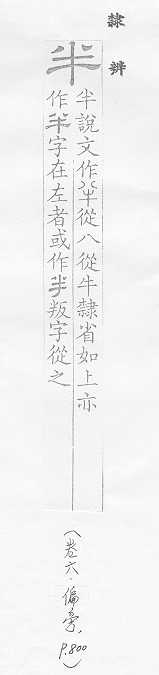 隸辨
半
半說文作𠦒從八從牛隸省如上亦
作半字在左者或作半叛字從之
(卷六·偏旁, P.800)